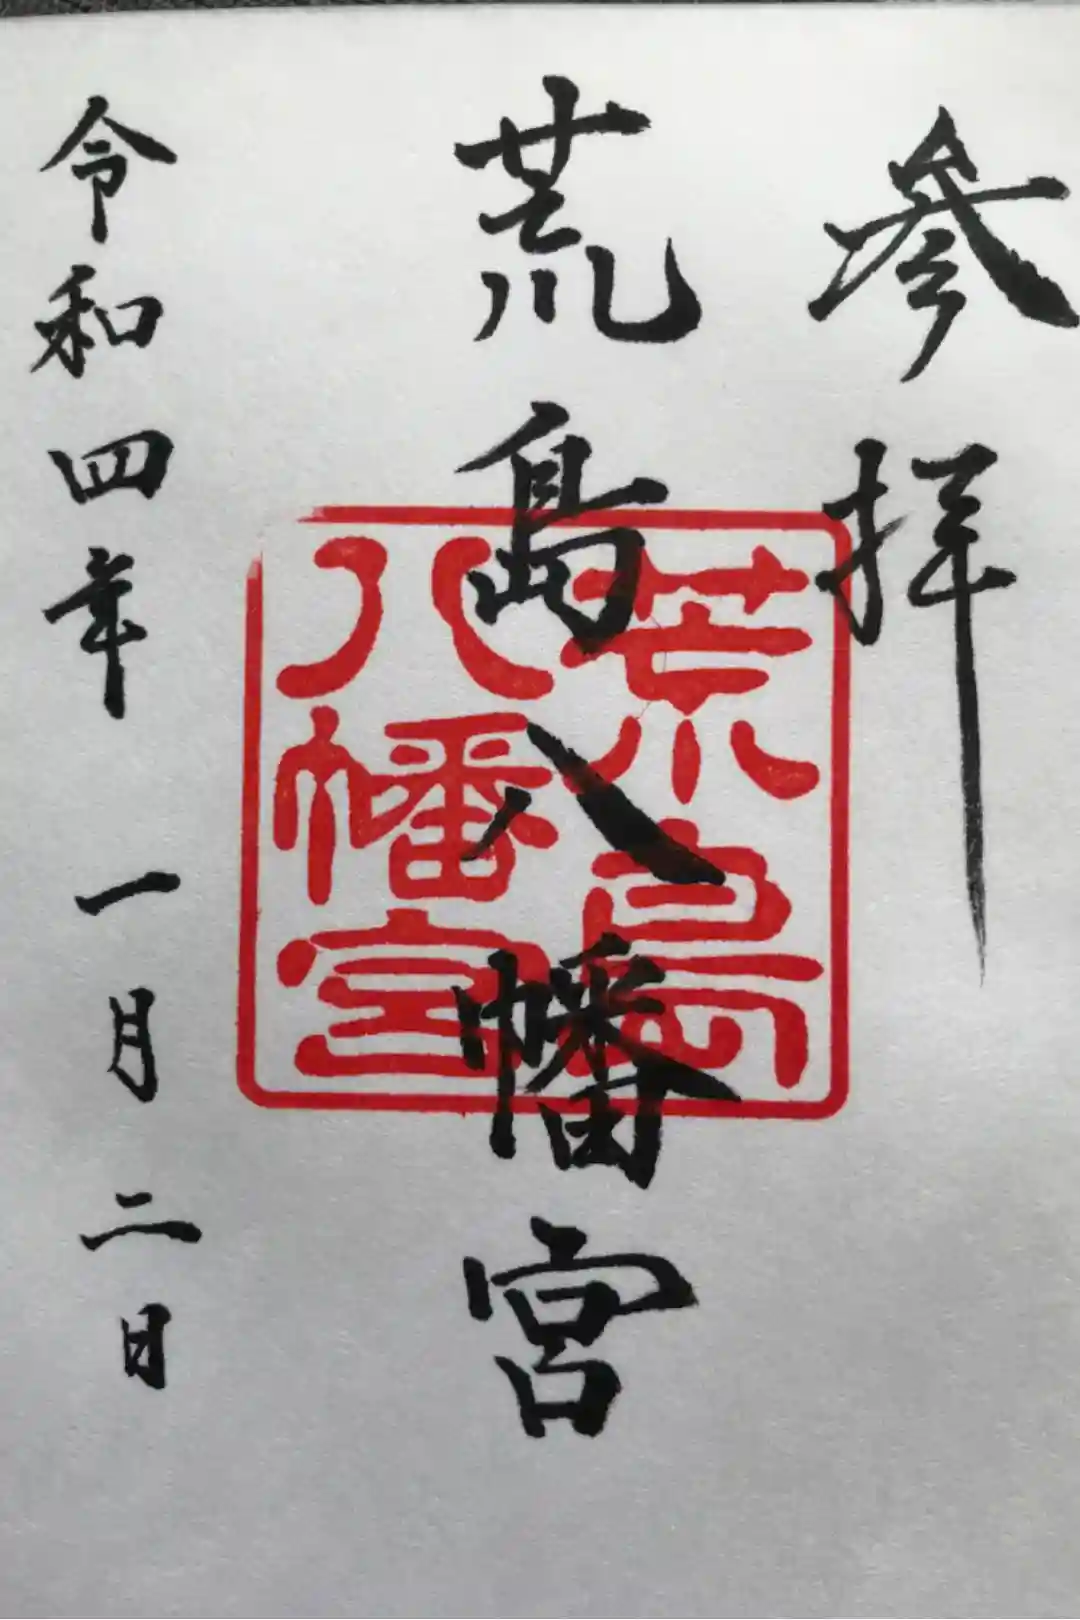 参拝
荒島八幡宮
荒島
八幡宮
令和四年 一月二日